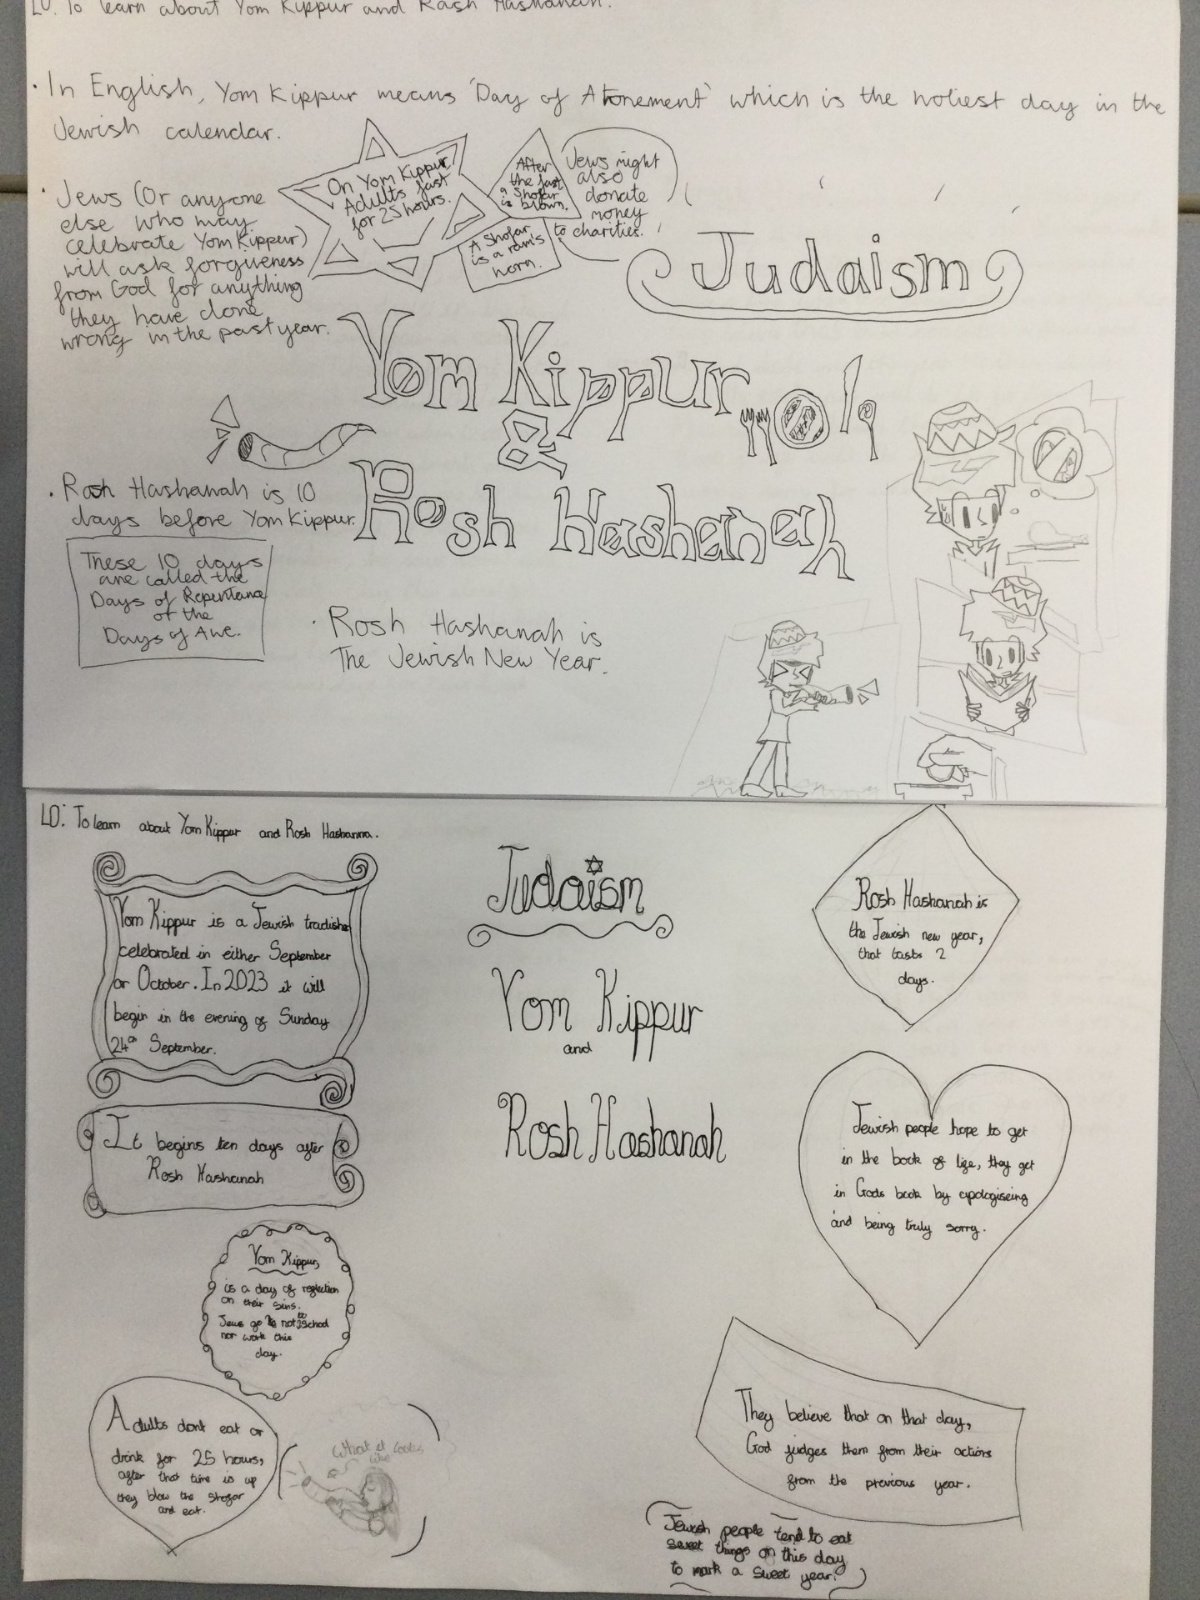 LO: To learn about Yom Kippur and Rosh Hashanah.
· In English, Yom Kippur means 'Day of Atonement' which is the holiest day in the
Jewish calendar.
· Jews (Or anyone
else who may
celebrate Yom Kippur)
will ask forgiveness
from God for anything
they have done
wrong in the past year.
On Yom Kippur,
Adults fast
for 25 hours.
After
the fast
a Shofar
is blown.
A Shofar
is a ram's
horn.
Jews might
also
donate
money
to charities.
Judaism
Yom Kippur
&
Rosh Hashanah
· Rosh Hashanah is 10
days before Yom Kippur.
These 10 days
are called the
Days of Repentance
or the
Days of Awe.
· Rosh Hashanah is
The Jewish New Year.
LO: To learn about Yom Kippur and Rosh Hashanna.
Yom Kippur is a Jewish tradishon
celebrated in either September
or October. In 2023 it will
begin in the evening of Sunday
24th September.
It begins ten days after
Rosh Hashanah
Yom Kippur,
is a day of reflection
on their sins.
Jews go not to school
nor work this
day.
Adults dont eat or
drink for 25 hours,
after that time is up
they blow the shofar
and eat.
What it looks
like
Judaism
Yom Kippur
and
Rosh Hashanah
Rosh Hashanah is
the Jewish new year,
that lasts 2
days.
Jewish people hope to get
in the book of life, they get
in Gods book by apologiseing
and being truly sorry.
They believe that on that day,
God judges them from their actions
from the previous year.
Jewish people tend to eat
sweet things on this day
to mark a sweet year.